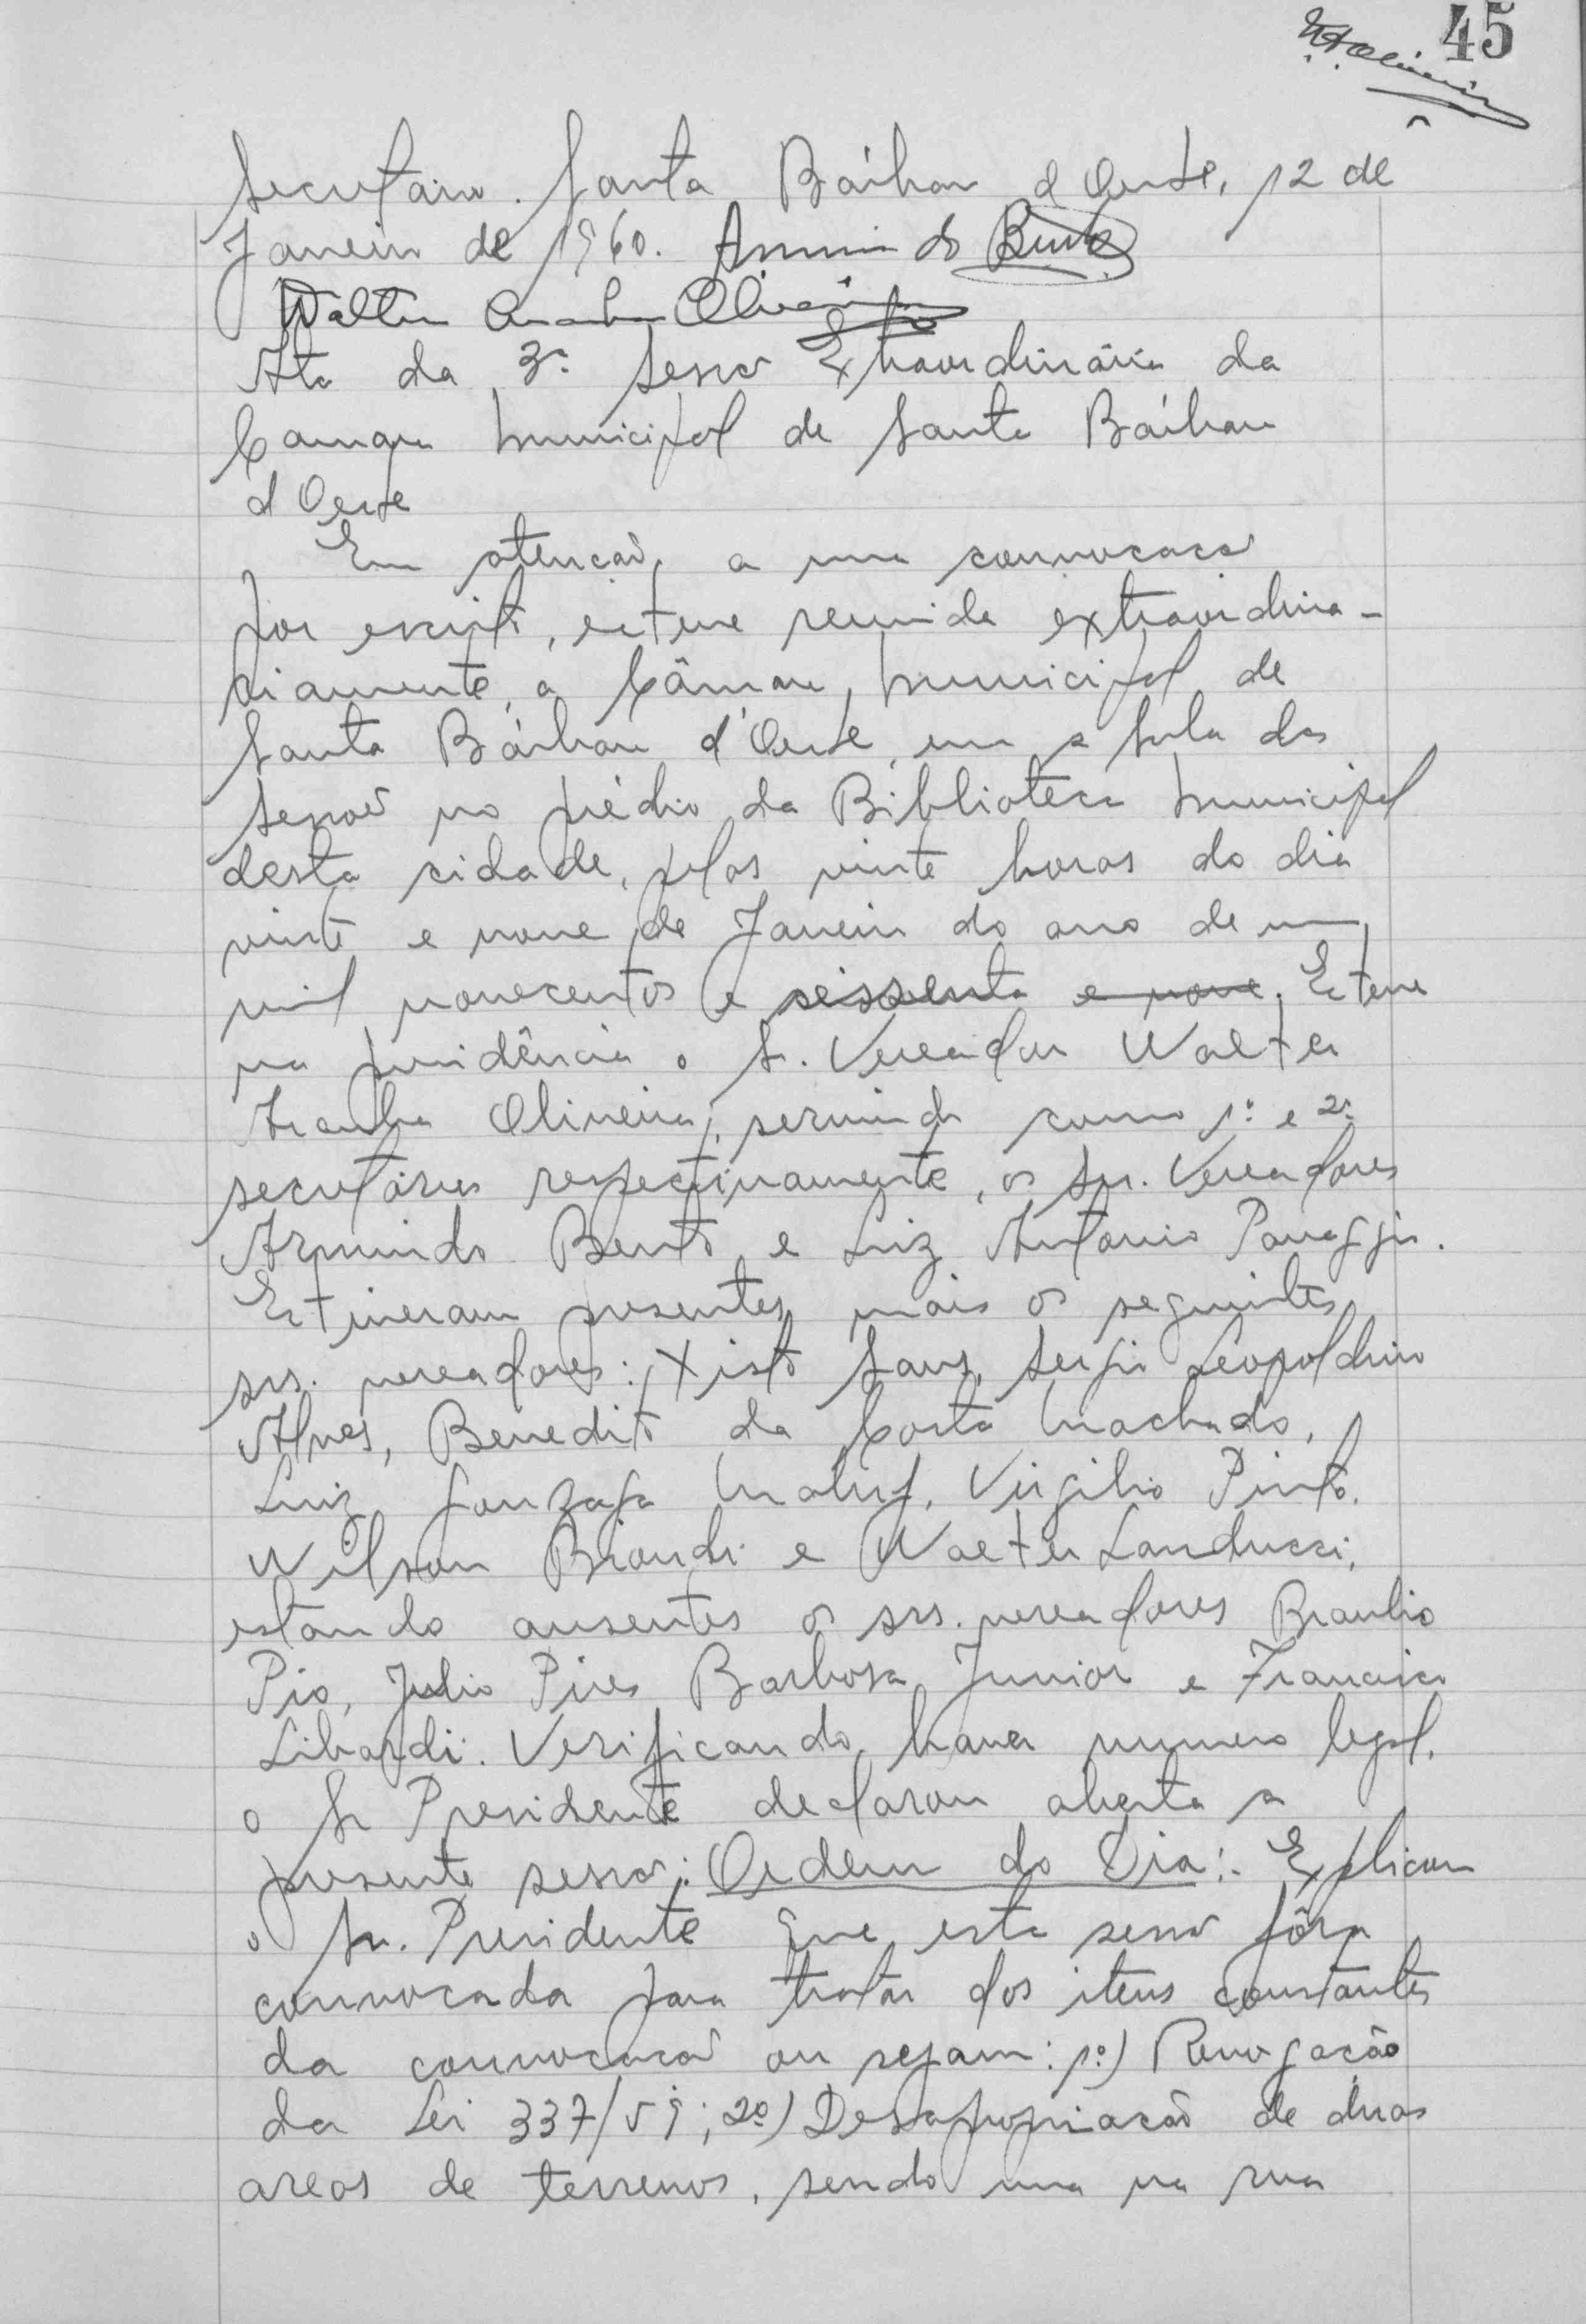 45
Secretário. Santa Bárbara d Oeste, 12 de
Janeiro de 1960. Armindo Bento
Walter Aranha Oliveira
Ata da 3ª Sessão Extraordinária da
Camara Municipal de Santa Bárbara
d Oeste
Em atenção, a uma convocação
por escrito, esteve reunida extraordina-
riamente, a Câmara, Municipal de
Santa Bárbara d'Oeste, em a sala das
sessões no prédio da Biblioteca Municipal
desta cidade, pelas vinte horas do dia
vinte e nove de Janeiro do ano de um
mil novecentos e sessenta e nove. Esteve
na presidência o Sr. Vereador Walter
Aranha Oliveira, servindo como 1º e 2º
secretários respectivamente, os Srs. Vereadores
Armindo Bento e Luiz Antonio Panaggio.
Estiveram presentes mais os seguintes
srs. vereadores: Xisto Sans, Sergio Leopoldino
Alves, Benedito da Costa Machado,
Luiz Gonzaga Maluf, Virgilio Pinto,
Wilson Biondi e Walter Landucci,
estando ausentes os srs. vereadores Braulio
Pio, Julio Pires Barbosa Junior e Francisco
Libardi. Verificando haver numero legal,
o Sr Presidente declarou aberta a
presente sessão: Ordem do Dia:- Explicou
o Sr. Presidente que esta sessão fôra
convocada para tratar dos itens constantes
da convocação ou sejam: 1º) Revogação
da Lei 337/59; 2º) Desapropriação de duas
areas de terrenos, sendo uma na rua